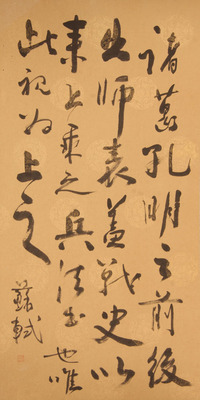 諸葛孔明之前後
出师表蓋戰史以
来上乘之兵法書也唯
此視为上之
蘇軾